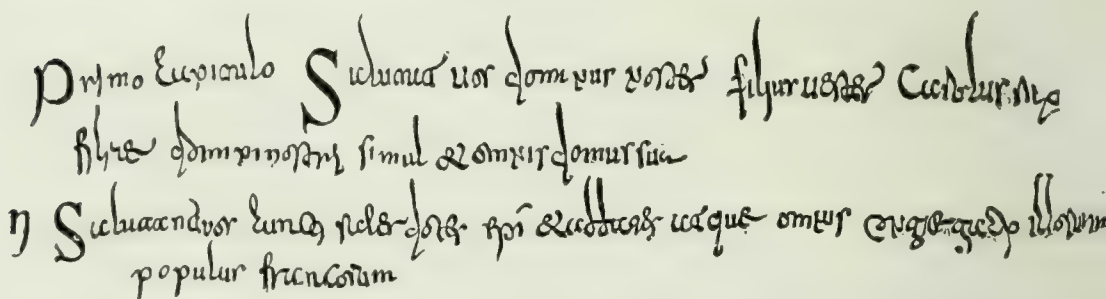 Primo Capitulo Salutat uos dominus noster filius uester Carolus
filiae domini nostri simul & omnis domus sua
II Salutant uos cuncti sacerdotes epi & abbates atque omnis congregatio illorum
populus francorum